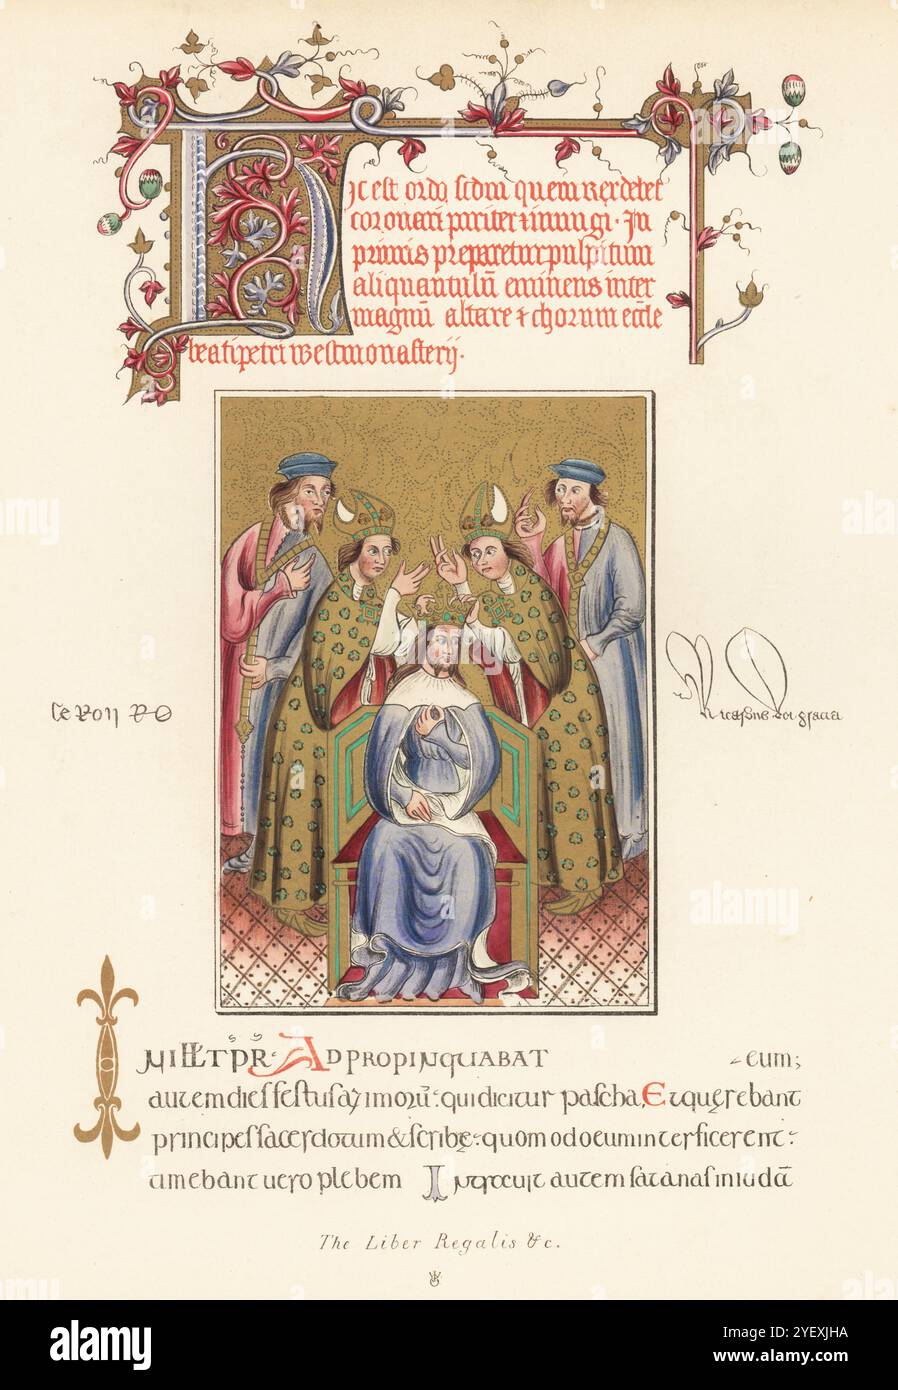 Hic est ordo scdm quem Rex debet
coronari pariter & inungi. In
primis preparetur pulpitum
aliquantulũ eminens inter
magnũ altare & chorum ecc̃le
beati petri Westmonasterij.
le Roy R
IN ILL̃ T̃P̃R̃. ADPROPINQUABAT eum;
autem dies festus azimorũ: qui dicitur pascha. Et querebant
principes sacerdotum & scribę: quomodo eum interficerent:
timebant uero plebem Introiuit autem satanas in iudã
The Liber Regalis &c.
alamy
Image ID: 2YEXJHA
www.alamy.com